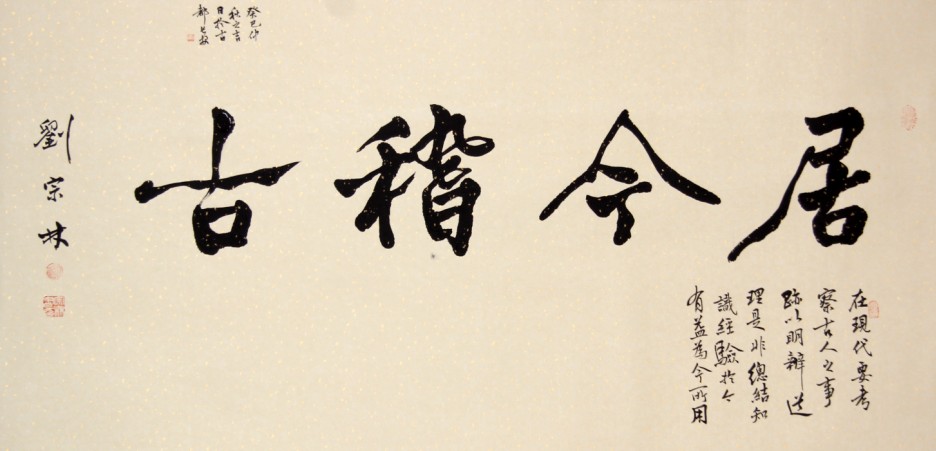 居今稽古
在現代要考
察古人之事
跡以明辨道
理是非總結知
識經驗於今
有益為今所用
癸巳仲
秋之吉
日於古
都長安
劉宗林